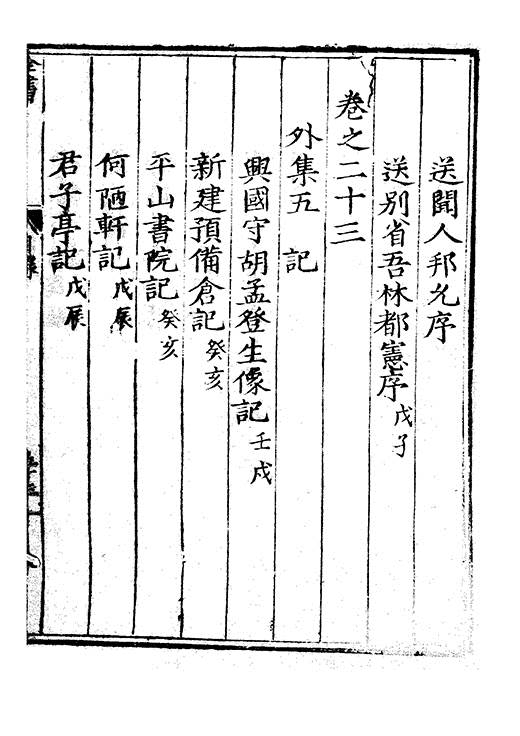 送聞人邦允序
送別省吾林都憲序戊子
卷之二十三
外集五 記
興國守胡孟登生像記壬戌
新建預備倉記癸亥
平山書院記癸亥
何陋軒記戊辰
君子亭記戊辰